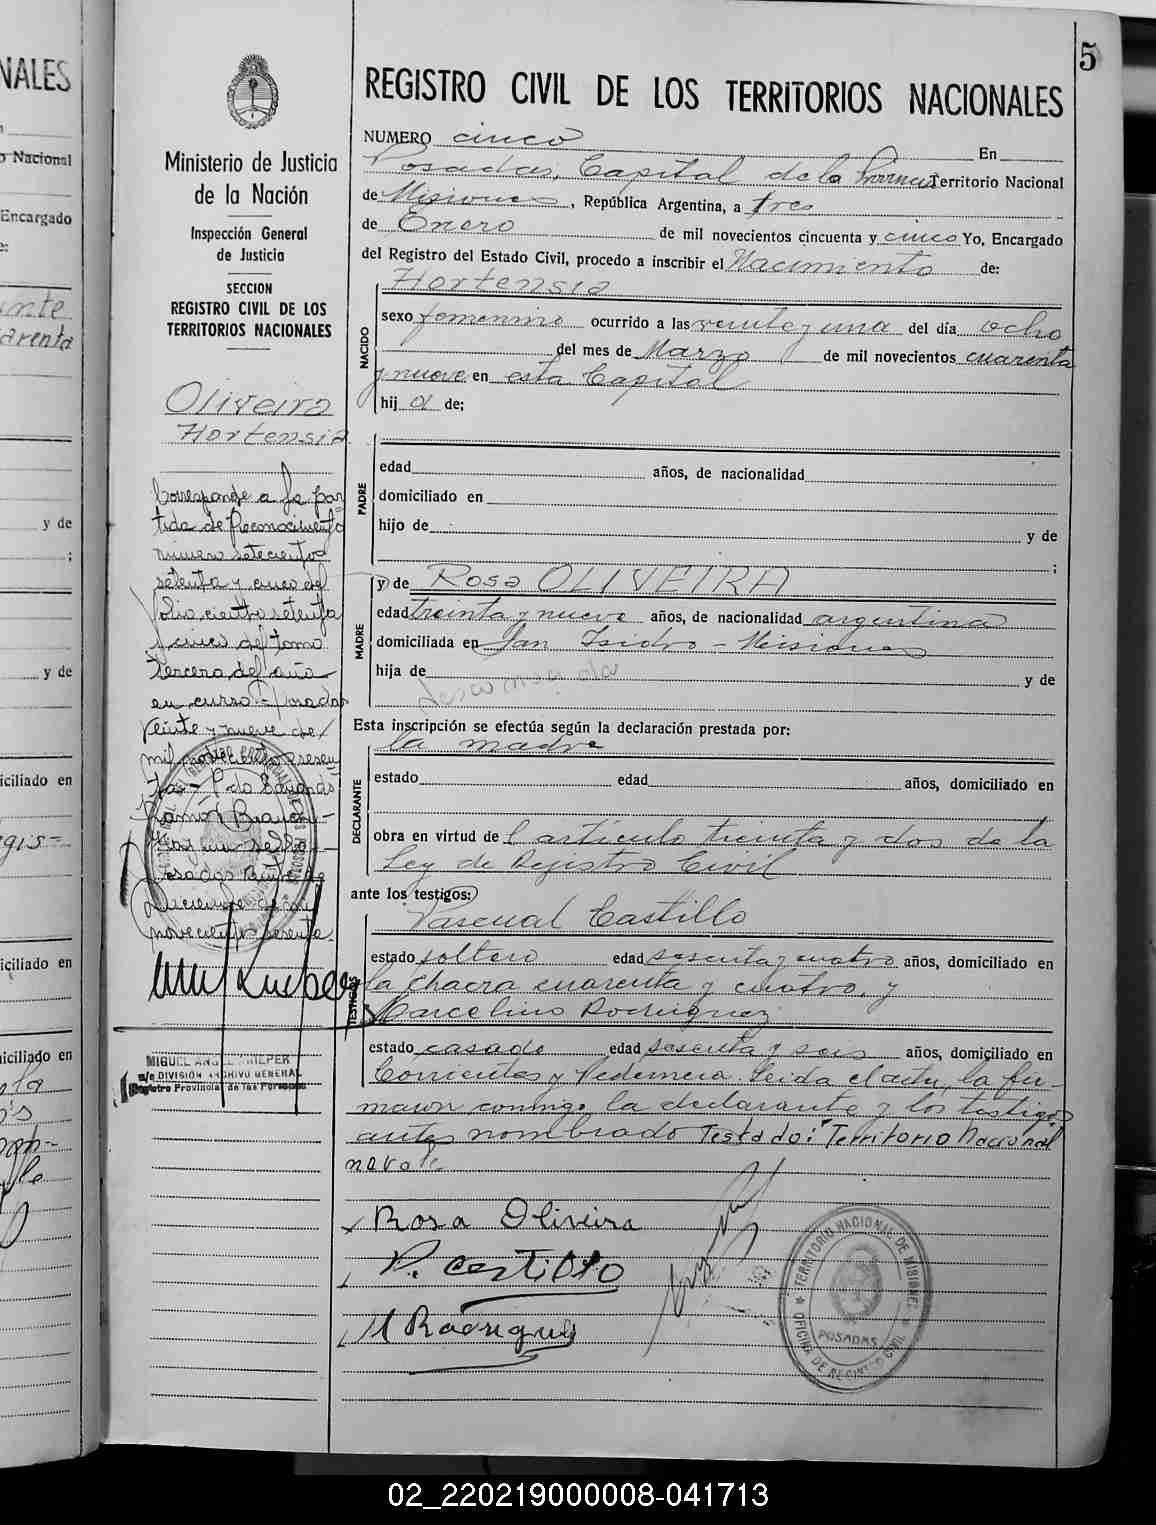 NALES
o Nacional
Encargado
y de
y de
iciliado en
iciliado en
iciliado en
5
Ministerio de Justicia
de la Nación
Inspección General
de Justicia
SECCION
REGISTRO CIVIL DE LOS
TERRITORIOS NACIONALES
Oliveira
Hortensia
Corresponde a la par
tida de Reconocimiento
número setecientos
setenta y cinco del
folio ciento setenta
y cinco del tomo
tercero del año
en curso. Posadas
veinte y nueve de
mil novecientos sesen
Ramón
Posadas
Diciembre de mil
novecientos sesenta.
MIGUEL ANGEL KRIEPER
a/c DIVISIÓN ARCHIVO GENERAL
Registro Provincial de las Personas
REGISTRO CIVIL DE LOS TERRITORIOS NACIONALES
NUMERO cinco En
Posadas, Capital de la Provincia Territorio Nacional
de Misiones, República Argentina, a tres
de Enero de mil novecientos cincuenta y cinco Yo, Encargado
del Registro del Estado Civil, procedo a inscribir el Nacimiento de:
Hortensia
NACIDO
sexo femenino ocurrido a las veinte y una del día ocho
del mes de Marzo de mil novecientos cuarenta
y nueve en esta Capital
hij a de;
PADRE
edad años, de nacionalidad
domiciliado en
hijo de y de
;
y de Rosa OLIVEIRA
MADRE
edad treinta y nueve años, de nacionalidad argentina
domiciliada en San Isidro - Misiones
hija de y de
Esta inscripción se efectúa según la declaración prestada por:
la madre
DECLARANTE
estado edad años, domiciliado en
obra en virtud de l artículo treinta y dos de la
Ley de Registro Civil
ante los testigos:
Pascual Castillo
TESTIGOS
estado soltero edad sesenta y cuatro años, domiciliado en
la chacra cuarenta y cuatro, y
Marcelino Rodriguez
estado casado edad sesenta y seis años, domiciliado en
Corrientes y Pedernera. Leida el acta, la fir-
maron conmigo, la declarante y los testigos
antes nombrado Testado: Territorio Nacional
no vale
Rosa Oliveira
P. Castillo
M Rodriguez
TERRITORIO NACIONAL DE MISIONES
POSADAS
OFICINA DE REGISTRO CIVIL
02_220219000008-041713